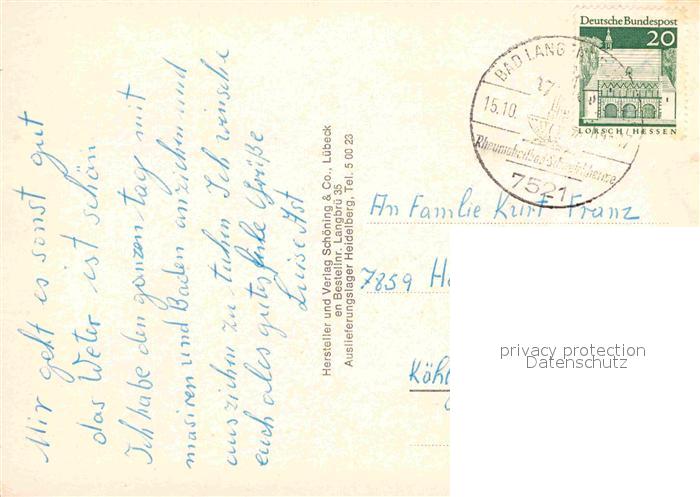 Mir geht es sonst gut
das Weter ist schön
Ich habe den ganzen tag mit
masiren und Baden anziehn und
ausziehn zu tuhen Ich wünsche
euch ales gute fiele Grüße
Luise Ast
Hersteller und Verlag Schöning & Co., Lübeck
en Bestellnr. Langbrü 35
Auslieferungslager Heidelberg, Tel. 5 00 23
Deutsche Bundespost
20
LORSCH/HESSEN
BAD LANG
15.10.
7521
An Familie Kurt Franz
7859 Ha
Köhl
privacy protection
Datenschutz